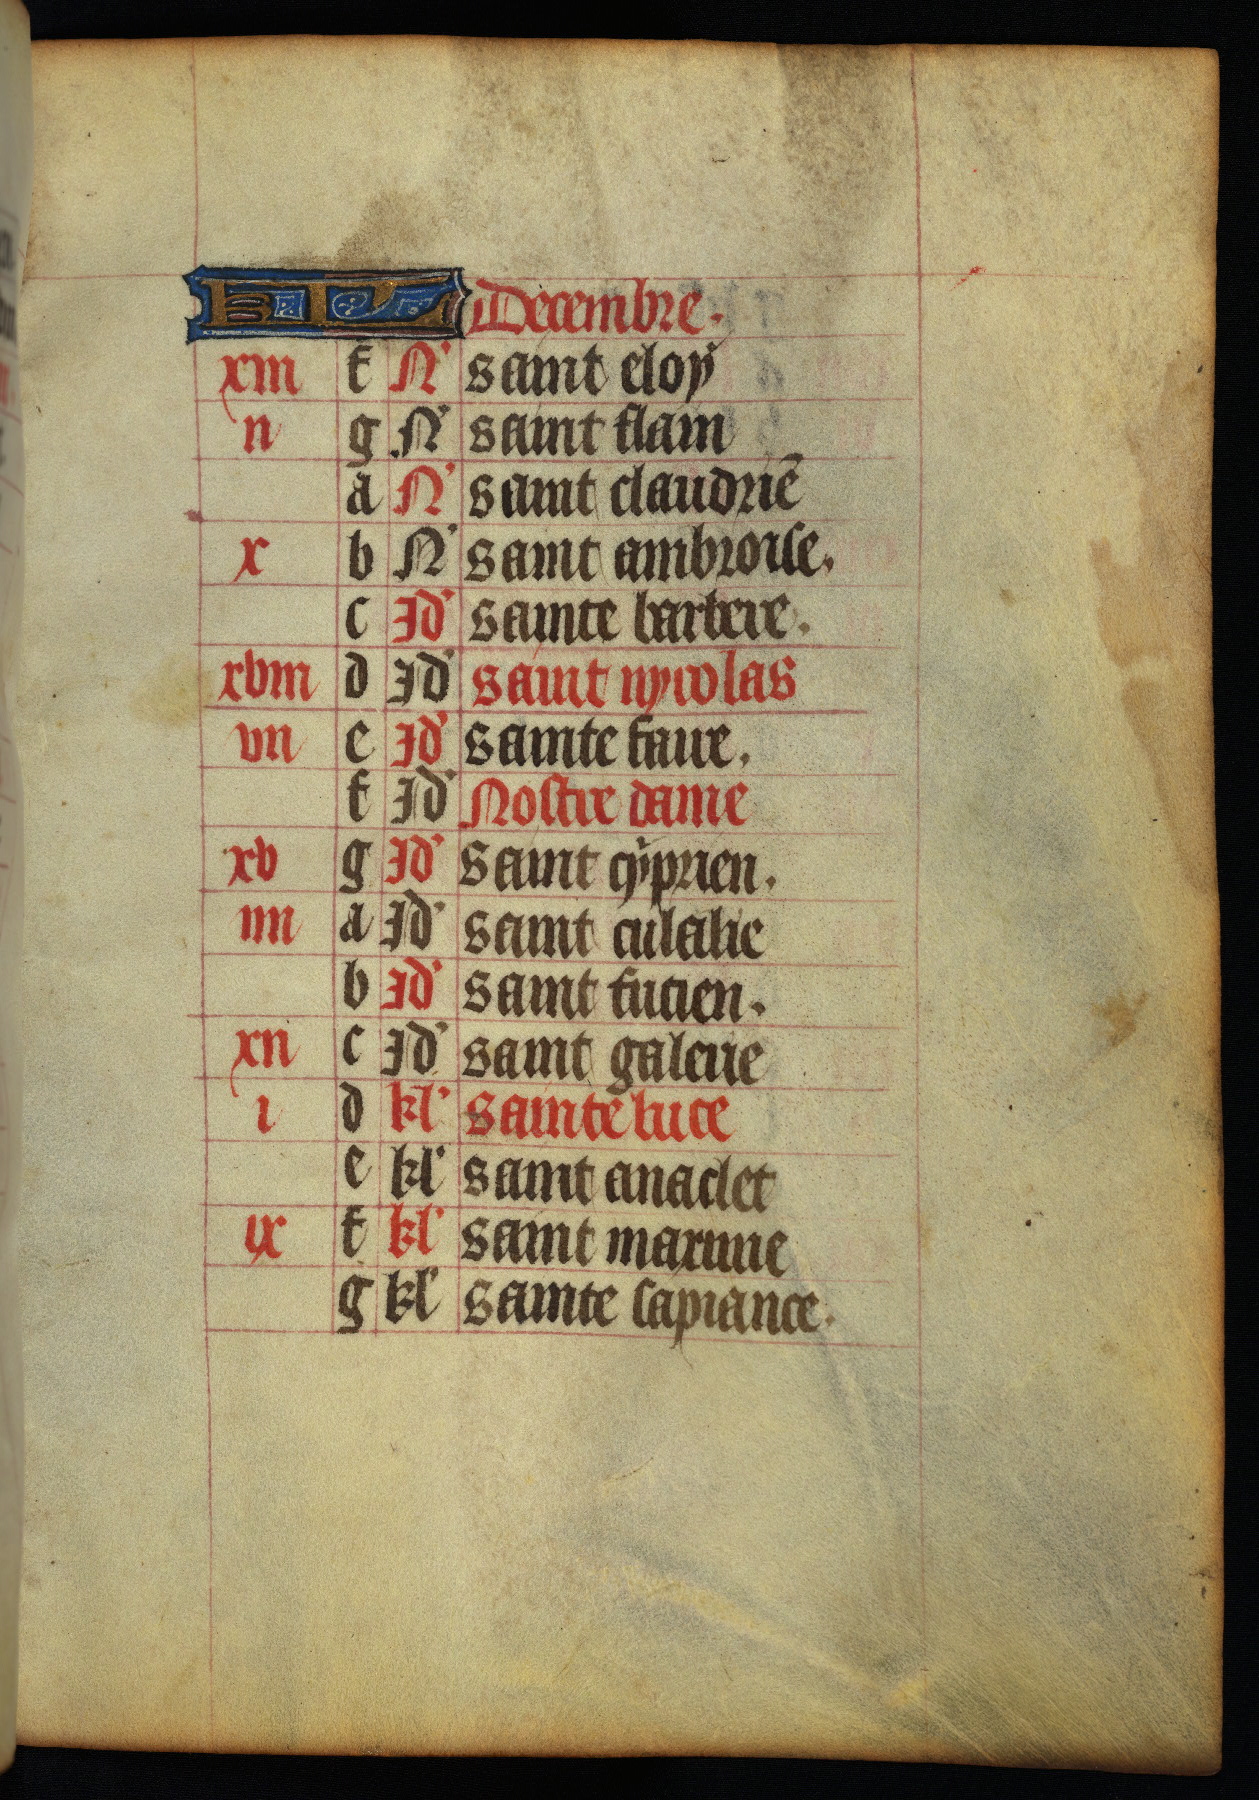 KL Decembre.
xiii f N' saint eloy
ii g N' saint flain
a N' saint claudriē
x b N' saint ambroise.
c Id' sainte barbere.
xviii d Id' saint nycolas
vii e Id' sainte faure.
f Id' Nostre dame
xv g Id' saint cyprien.
iiii a Id' saint eulalie
b Id' saint fucien.
xii c Id' saint galeue
i d kl' sainte luce
e kl' saint anaclet
ix f kl' saint maxime
g kl' sainte sapiance.